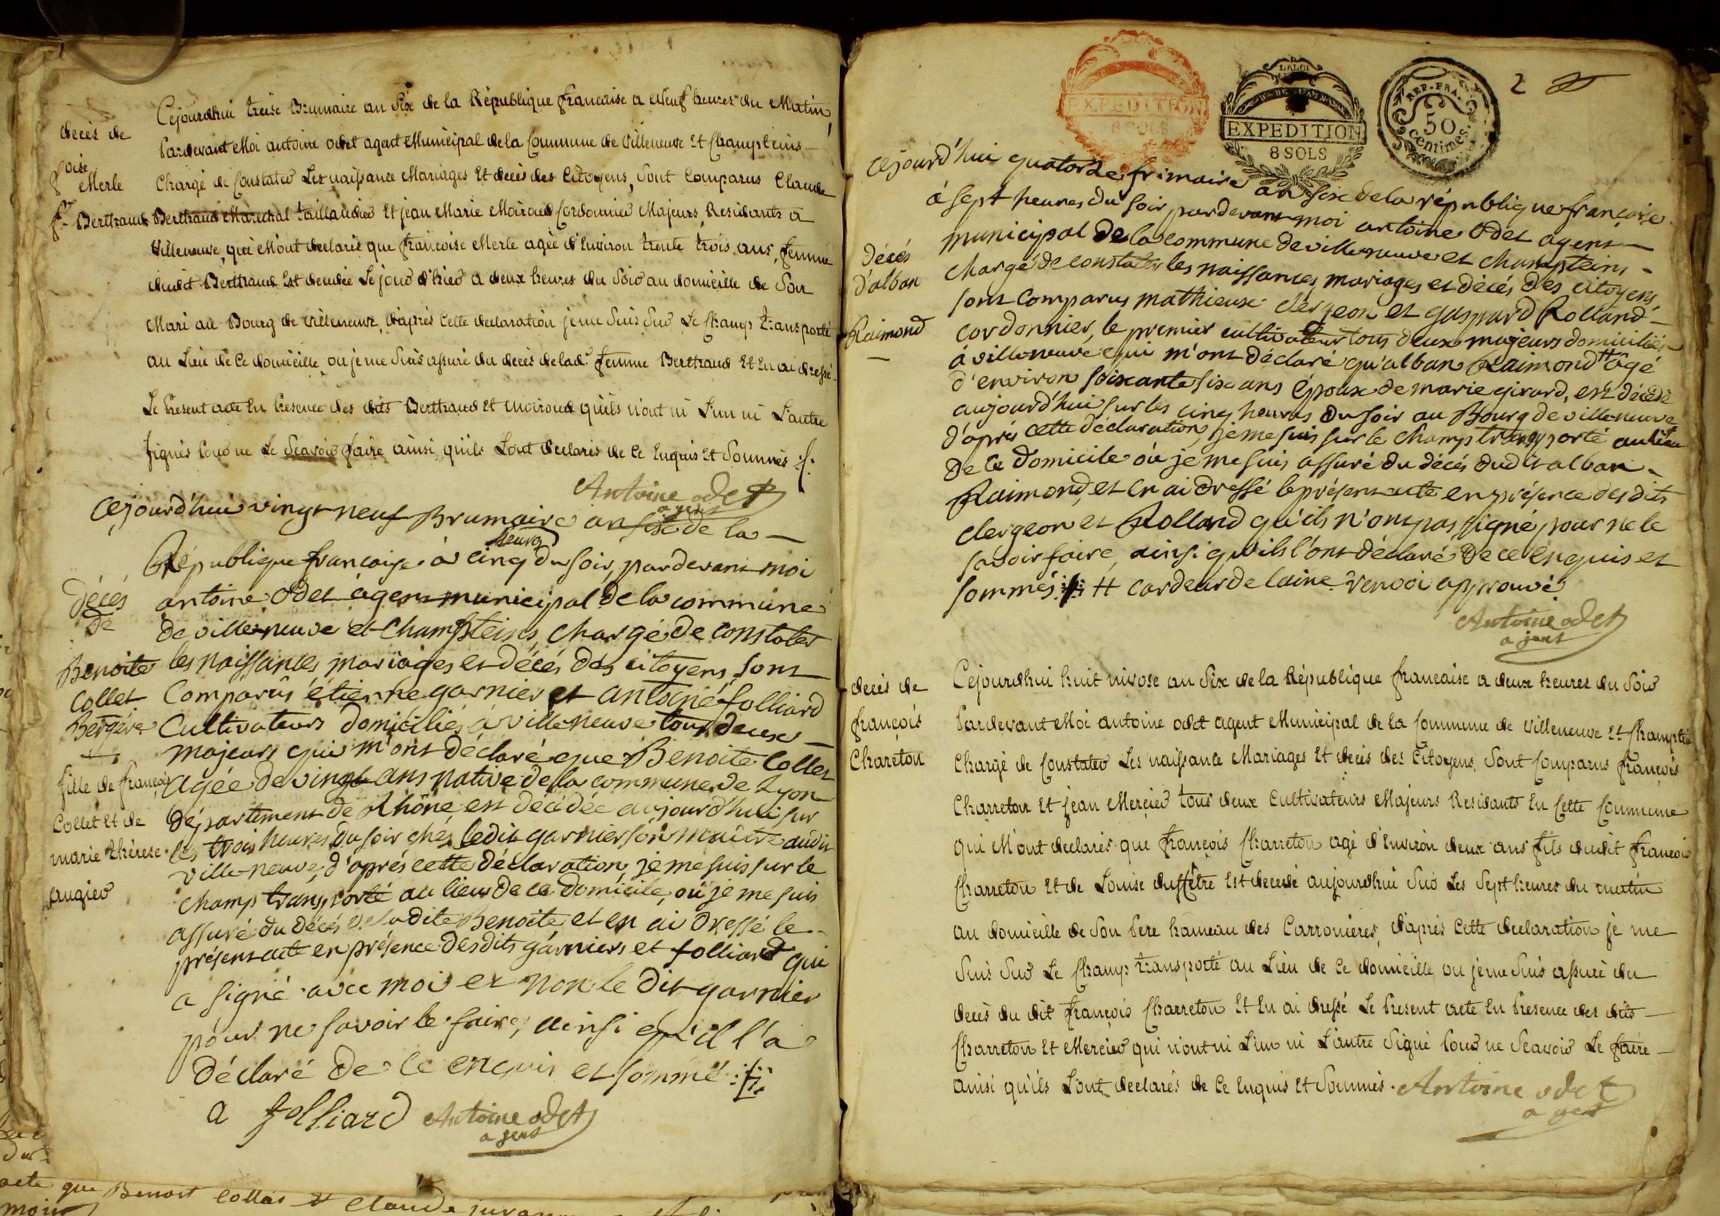 Cejourdhui treise Brumaire an Six de la République francaise a neuf heures du Matin
decès de
pardevant Moi antoine odet agent Municipal de la Commune de Villeneuve Et Champteins
foise
Merle
Chargé de Constater Les naissance Mariages Et decès des Citoyens, sont Comparus Claude
fe Bertraud
Bertraud Marechal taillandier Et jean Marie Moiroud Cordonnier Majeurs Residants a
Villeneuve, qui M'ont declarés que francoise Merle agée d'Environ trente trois ans, femme
dudit Bertraud Est decedée Le jour d'hier a deux heures du Soir au domicille de Son
Mari au Bourg de Villeneuve, d'après Cette declaration je me Suis Sur Le Champ transporté
au Lieu de Ce domicille ou je me Suis assuré du decès de lad. femme Bertraud Et En ai dressé
Le Present acte En Presence des dits Bertraud Et Moiroud qu'ils n'ont ni L'un ni L'autre
signés pour ne Le Scavoir faire ainsi qu'ils L'ont declarés de Ce Enquis Et Sommés
Antoine odet
agent
Cejourd'hui vingt neuf Brumaire an six de la
République francaise à cinq heures du soir, pardevant moi
décès
de
antoine Odet agent municipal de la commune
de villeneuve et Champteins, chargé de constater
Benoite
les naissances mariages et décès des citoyens, sont
Collet
Comparûs étienne garnier et antoine folliard
Bergère
Cultivateurs domiciliés à villeneuve tous deux
majeurs qui m'ont déclaré que Benoite Collet
fille de francois
agée de vingt ans native de la commune de Lyon
Collet et de
département de Rhône est décédée aujourd'hui sur
marie thérese
les trois heures du soir chez ledit garnier son maitre audit
augier
villeneuve, d'après cette déclaration, je me suis sur le
champ transporté au lieu de ce domicile, où je me suis
assuré du décès de ladite Benoite et en ai dressé le
présent acte en présence desdits garniers et folliard qui
a signé avec moi et non le dit garnier
pour ne savoir le faire, ainsi qu'il l'a
déclaré de ce enquis et sommé
a folliard Antoine odet
agent
acte que Benoit Collas et Claude
EXPEDITION
8 SOLS
LA LOI
EXPEDITION
8 SOLS
REP. FRA.
50
centimes.
2
Cejourd'hui quatorze frimaire an six de la république francaise
à sept heures du soir, pardevant moi antoine Odet agent
municipal de la commune de villeneuve et champteins
décès
d'alban
Raimond
chargé de constater les naissances mariages et décès des citoyens
sont comparus mathieux clergeon et gaspard Rolland
cordonnier, le premier cultivateur tous deux majeurs domiciliés
à villeneuve qui m'ont déclaré qu'alban Raimond ## âgé
d'environ soixante six ans époux de marie girard, est décédé
aujourd'hui sur les cinq heures du soir au Bourg de villeneuve
d'après cette déclaration, je me suis sur le champ transporté au lieu
de ce domicile où je me suis assuré du décès dudit alban
Raimond, et en ai dressé le présent acte en présence desdits
clergeon et Rolland qu'ils n'ont pas signé pour ne le
savoir faire, ainsi qu'ils l'ont déclaré de ce enquis et
sommés ## cardeur de laine renvoi approuvé
Antoine odet
agent
decès de
francois
Chareton
Cejourdhui huit nivose an Six de la République francaise a deux heures du Soir
Pardevant Moi antoine odet agent Municipal de la Commune de Villeneuve Et Champteins
Chargé de Constater Les naissance Mariages Et decès des Citoyens, Sont Comparus francois
Charreton Et jean Mercier tous deux Cultivateurs Majeurs Residants En Cette Commune
qui M'ont declarés que francois Charreton agé d'Environ deux ans fils dudit francois
Charreton Et de Louise duffêtre Est decedé aujourdhui Sur Les Sept heures du matin
au domicille de Son Pere hameau des Carronieres, d'après Cette declaration je me
Suis Sur Le Champ transporté au Lieu de Ce domicille ou je me Suis assuré du
decès du dit francois Charreton Et En ai dressé Le Present acte En Presence des dits
Charreton Et Mercier qui n'ont ni L'un ni L'autre Signé Pour ne Scavoir Le faire
ainsi qu'ils L'ont declarés de Ce Enquis Et Sommés. Antoine odet
agent